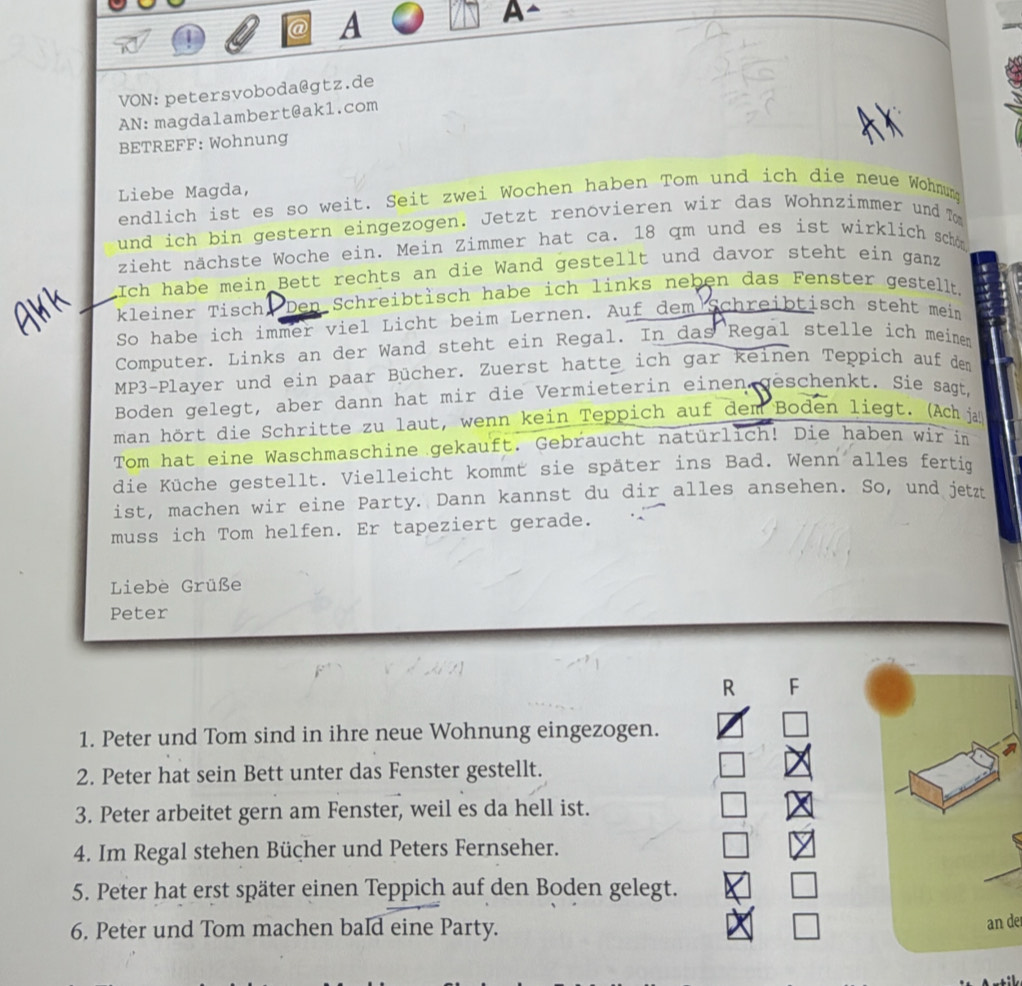 @ A A
VON: petersvoboda@gtz.de
AN: magdalambert@ak1.com
BETREFF: Wohnung
AK
Liebe Magda,
endlich ist es so weit. Seit zwei Wochen haben Tom und ich die neue Wohnung
und ich bin gestern eingezogen. Jetzt renovieren wir das Wohnzimmer und Tom
zieht nächste Woche ein. Mein Zimmer hat ca. 18 qm und es ist wirklich schön.
Ich habe mein Bett rechts an die Wand gestellt und davor steht ein ganz
AKK
kleiner Tisch. D Den Schreibtisch habe ich links neben das Fenster gestellt.
So habe ich immer viel Licht beim Lernen. Auf dem D Schreibtisch steht mein
Computer. Links an der Wand steht ein Regal. In das A Regal stelle ich meinen
MP3-Player und ein paar Bücher. Zuerst hatte ich gar keinen Teppich auf den
Boden gelegt, aber dann hat mir die Vermieterin einen geschenkt. Sie sagt,
man hört die Schritte zu laut, wenn kein Teppich auf dem D Boden liegt. (Ach ja!
Tom hat eine Waschmaschine gekauft. Gebraucht natürlich! Die haben wir in
die Küche gestellt. Vielleicht kommt sie später ins Bad. Wenn alles fertig
ist, machen wir eine Party. Dann kannst du dir alles ansehen. So, und jetzt
muss ich Tom helfen. Er tapeziert gerade.
Liebe Grüße
Peter
R F
1. Peter und Tom sind in ihre neue Wohnung eingezogen.
2. Peter hat sein Bett unter das Fenster gestellt.
3. Peter arbeitet gern am Fenster, weil es da hell ist.
4. Im Regal stehen Bücher und Peters Fernseher.
5. Peter hat erst später einen Teppich auf den Boden gelegt.
6. Peter und Tom machen bald eine Party.
an der